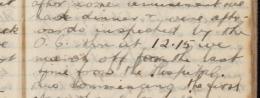 after some amusement we
had dinner & were after-
wards inspected by the
O.C. then at 12.15 we
off for the last
time from the
commencing the first